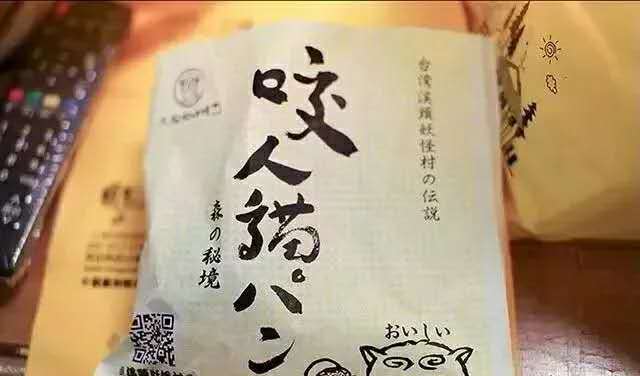 台湾渓頭妖怪村の伝説
咬人貓パン
森の秘境
おいしい